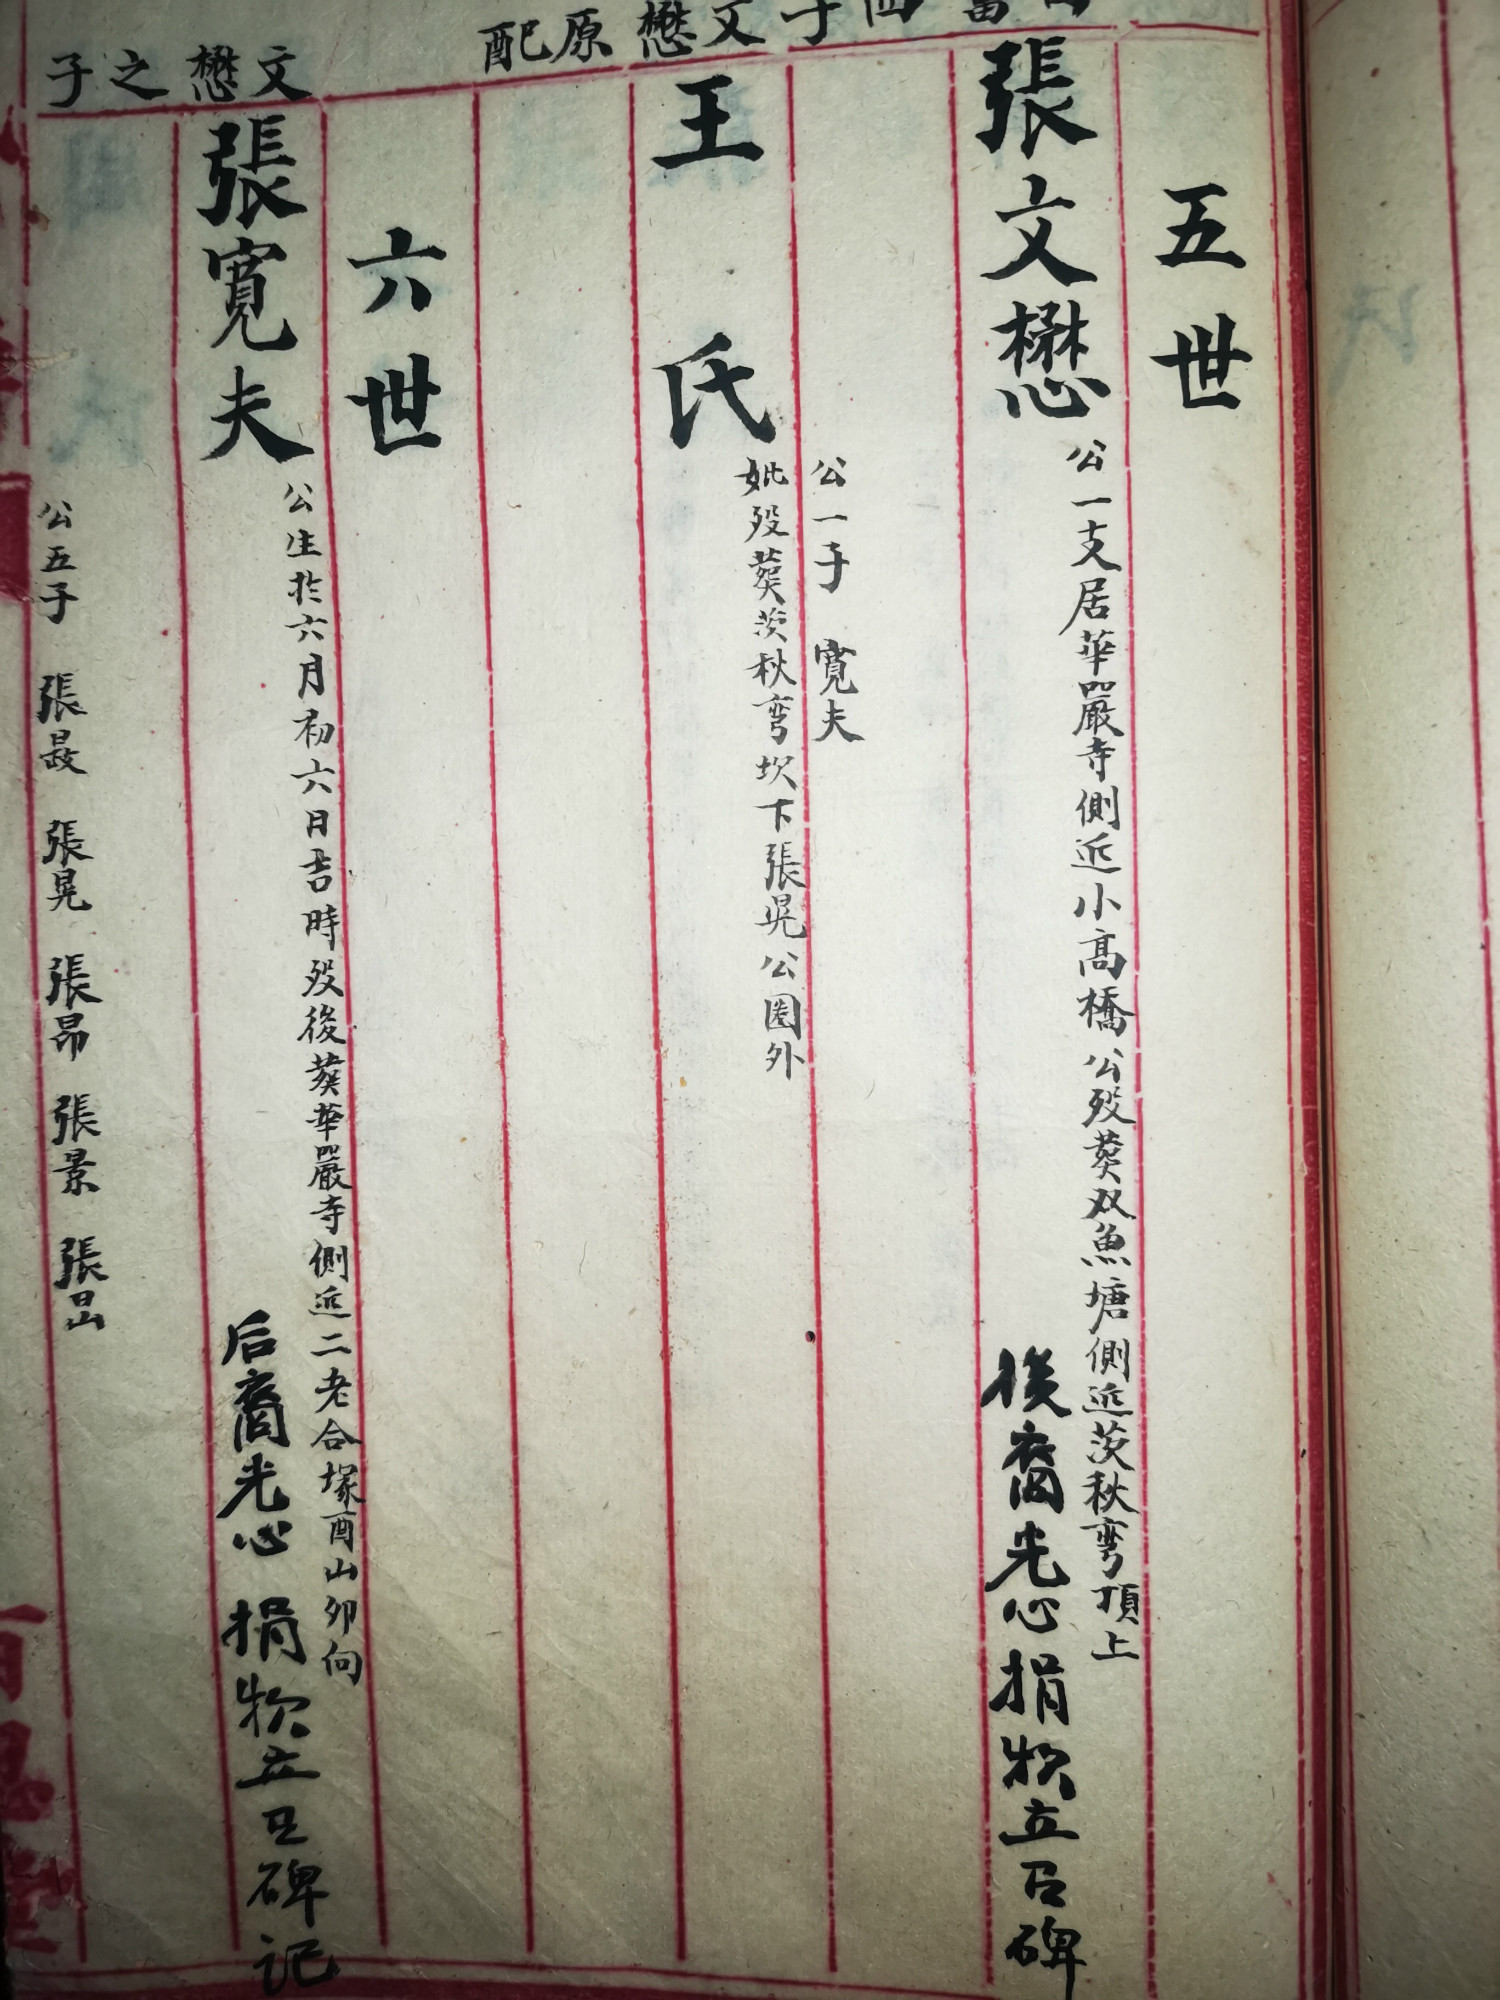 五世
子文懋原配
張文懋
公一支居華嚴寺側近小高橋公歿葬双魚塘側近茨秋弯頂上
後裔光心捐物立石碑
王氏
公一子 寬夫
妣歿葬茨秋弯坎下張晃公圈外
六世
文懋之子
張寬夫
公生於六月初六日吉時歿後葬華嚴寺側近二老合塚酉山卯向
后裔光心捐物立石碑记
公五子 張晸 張晃 張昂 張景 張昷